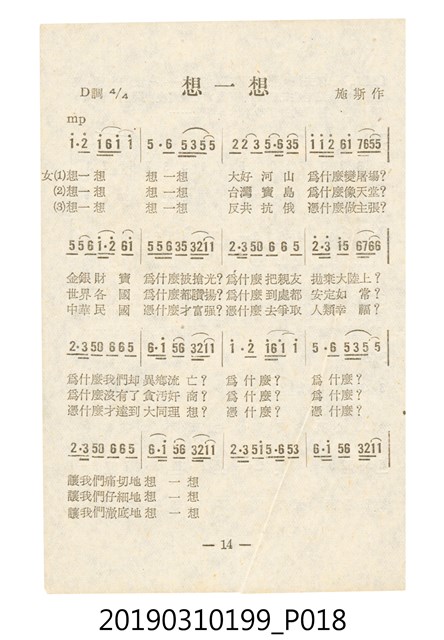 想一想
D調 4/4
施斯作
mp
1·2 1611 5·6 5355 223 5·635 1126 1 7655
女(1)想一想 想一想 大好河山 為什麼變屠場?
(2)想一想 想一想 台灣寶島 為什麼像天堂?
(3)想一想 想一想 反共抗俄 憑什麼做主張?
556 1·261 556 35 3211 2·350 665 2·3 15 6766
金銀財寶 為什麼被搶光? 為什麼把親友 拋棄大陸上?
世界各國 為什麼都讚揚? 為什麼到處都 安定如常?
中華民國 憑什麼才富强? 憑什麼去爭取 人類幸福?
2·350 665 6·1 56 3211 1·2 1611 5·6 5355
為什麼我們却異鄉流亡? 為什麼? 為什麼?
為什麼沒有了貪污奸商? 為什麼? 為什麼?
憑什麼才達到大同理想? 憑什麼? 憑什麼?
2·350 665 6·1 56 3211 2·3515·653 6·1 56 3211
讓我們痛切地想一想
讓我們仔細地想一想
讓我們澈底地想一想
— 14 —
20190310199_P018